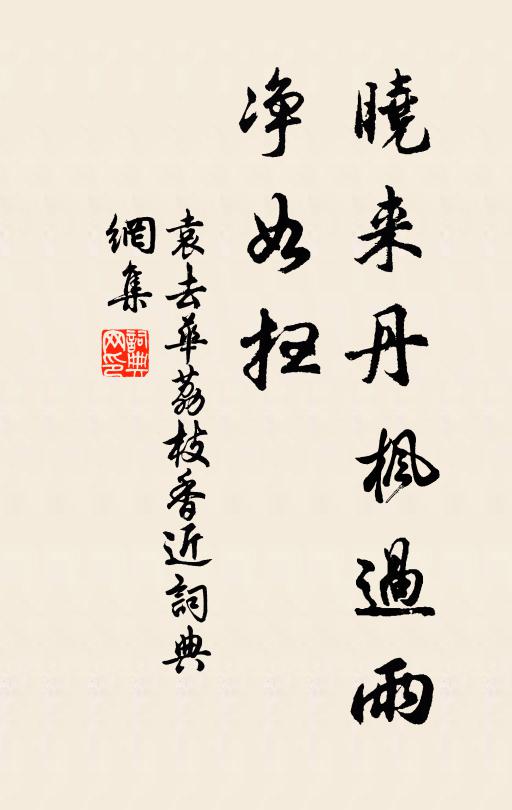 曉来丹楓過雨
净如扫
袁去華荔枝香近詞典
網集
詞典
网印